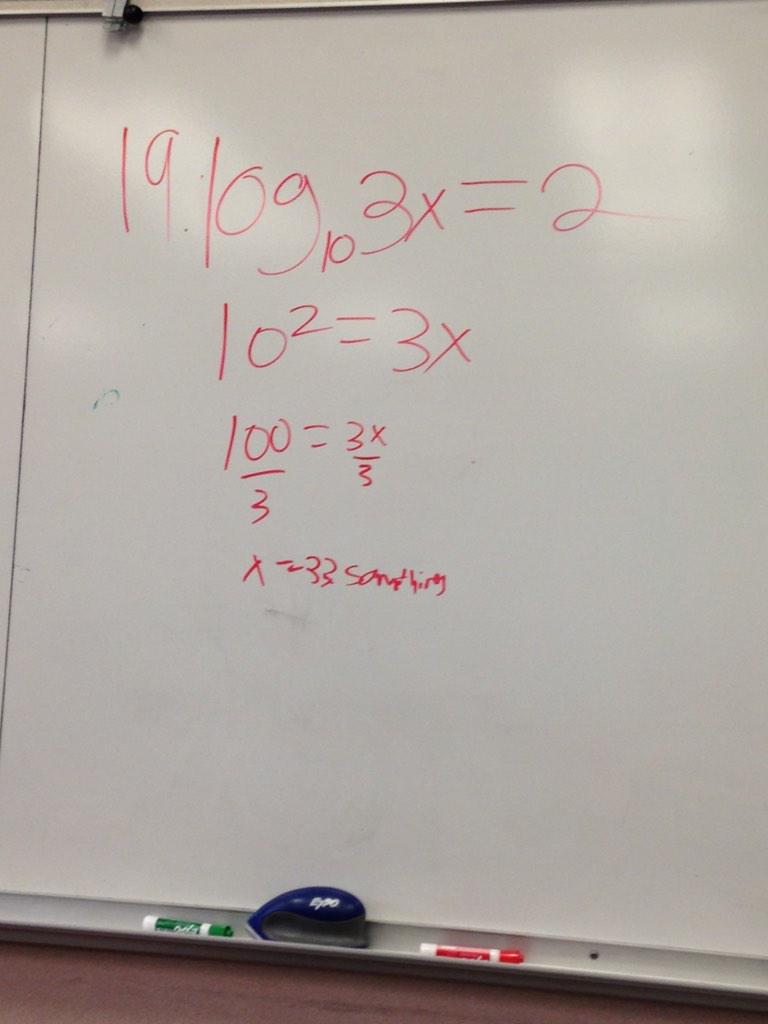 19. log₁₀3x=2
10²=3x
100/3 = 3x/3
x=33 something
EXPO